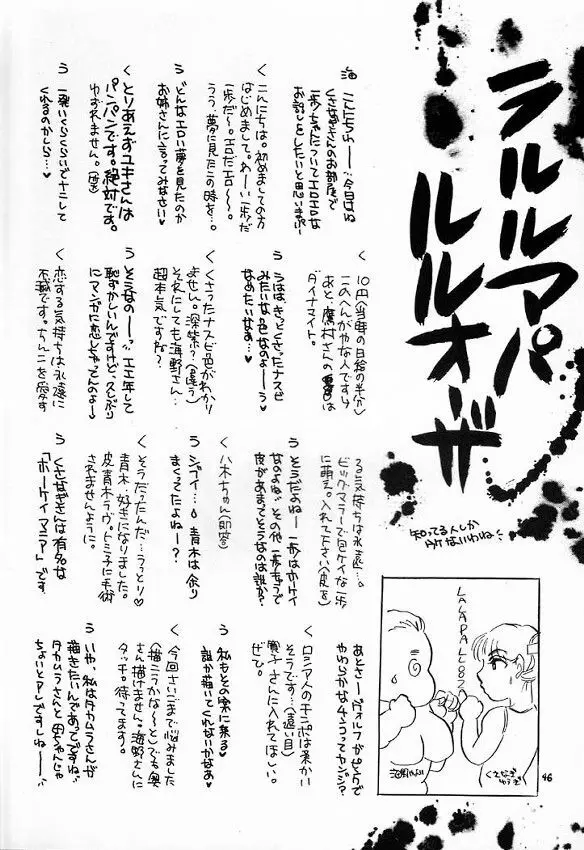 ラルルマパ
ルルオーザ
知ってる人しか
ワケないわね
海 こんにちわー…今日はね
くさなぎさんのお部屋で
一歩ちゃんについてエロエロな
お話しをしたいと思いまぷ
く こんにちは。初めましての方
はじめまして。わーい一歩だ
一歩だ〜。エロだエロ〜〜。
うう、夢に見たこの時を…。
う どんなエロい夢を見たのか
お姉さんに言ってみなさい♥
く とりあえずユキさんは
パンパンです。絶対です。
ゆずれません。
う 一発いくらくらいでナニして
くれるのかしら…♥
く 10円(当時の日給の半分)
このへんがやな人ですけ
あと、鷹村さんの
ダイナマイト。
う うはは、きっとくさったナスビ
みたいな色なのよーう
なめたいなあ…♥
く くさったナスビ色がわかり
ません。深緑?(違う)
それにしても海野さん…
超本気ですね?
う そうなのー…エエ年して
恥ずかしいんですけど久しぶり
にマンガに恋しちゃってんのよ〜
く 恋する気持ちは永遠に
不滅です。ちん○を愛す
る気持ちは永遠…。
ビッグマラーで包ケイな一歩
に萌え。入れて下さい(皮を)
う そうだよねー 一歩はホーケイ
なのよね。その他一歩キャラで
皮があまってそうなのは誰か?
く 八木ちゃん(即答)
う ジブイ…。青木は余り
まくってたよねー?
く そうだったんだ…うっとり♡
青木…好きになりました。
皮青木ラヴ。トミ子に手術
されませんように。
う くさなぎさんは有名な
「ホーケイマニア」です。
あとさーヴォルフがピンクで
やわらかな4ンコってカンジ?
く ロシア人のチンポは柔かい
そうです…(遠い目)
寛子さんに入れてほしい。
ぜひ。
う 私もその案に乗る♥
誰か描いてくれないかなあ♥
く 今回さいごまで悩みました
(描こうかな〜)とても奥
さん描けません。海野さんに
タッチ。待ってます。
う いや、私はタカムラさんが
描きたいんであってですね
タカムラさんと母ちゃんじゃ
ちょいとアレですしねー…
LALAPALLOOZA
46